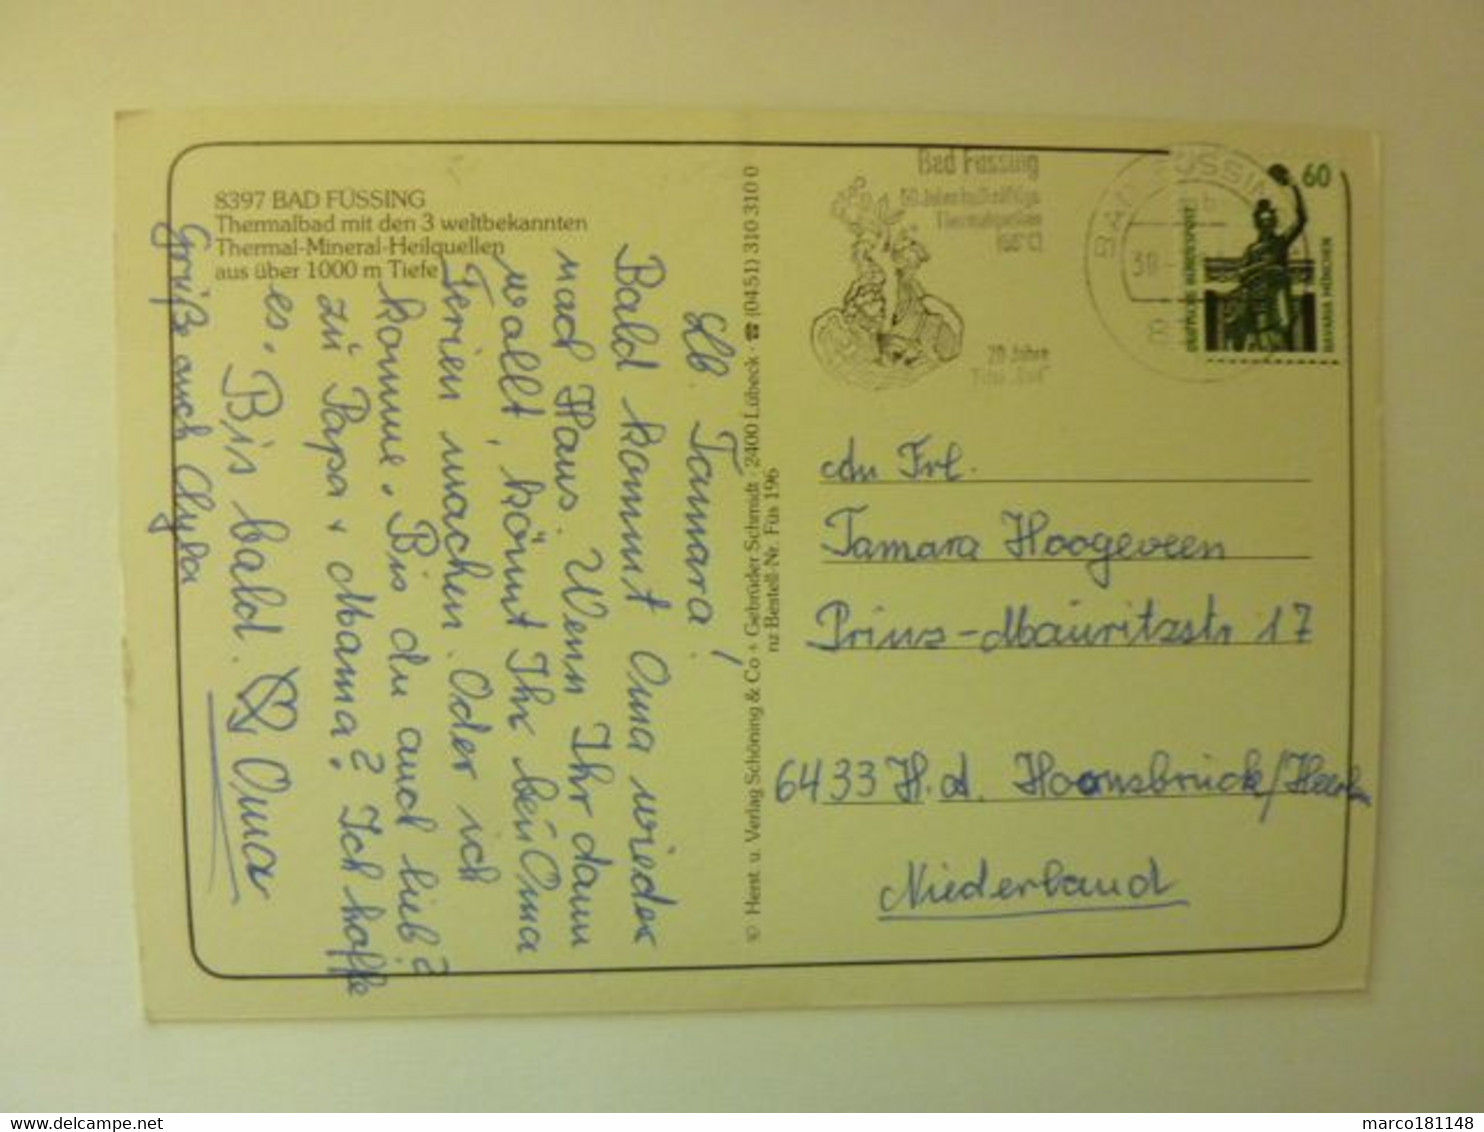 8397 BAD FÜSSING
Thermalbad mit den 3 weltbekannten
Thermal-Mineral-Heilquellen
aus über 1000 m Tiefe
Lb. Tamara!
Bald kommt Oma wieder
nach Haus. Wenn Ihr dann
wollt, könnt Ihr bei Oma
Ferien machen. Oder ich
komme. Bis du auch lieb?
zu Papa + Mama? Ich hoffe
es. Bis bald. Oma
Grüße auch
© Herst. u. Verlag Schöning & Co + Gebrüder Schmidt · 2400 Lübeck · ☎ (0451) 310 310 0
nz Bestell-Nr. Füs 196
Bad Füssing
50 Jahre
Thermalquellen
(56°C)
20 Jahre
BAD FÜSSING
30
60
DEUTSCHE BUNDESPOST
BAVARIA MÜNCHEN
An Frl.
Tamara Hoogeveen
Prinz-Mauritzstr 17
6433 H.d. Hoensbrück/Heerlen
Niederland
marco181148